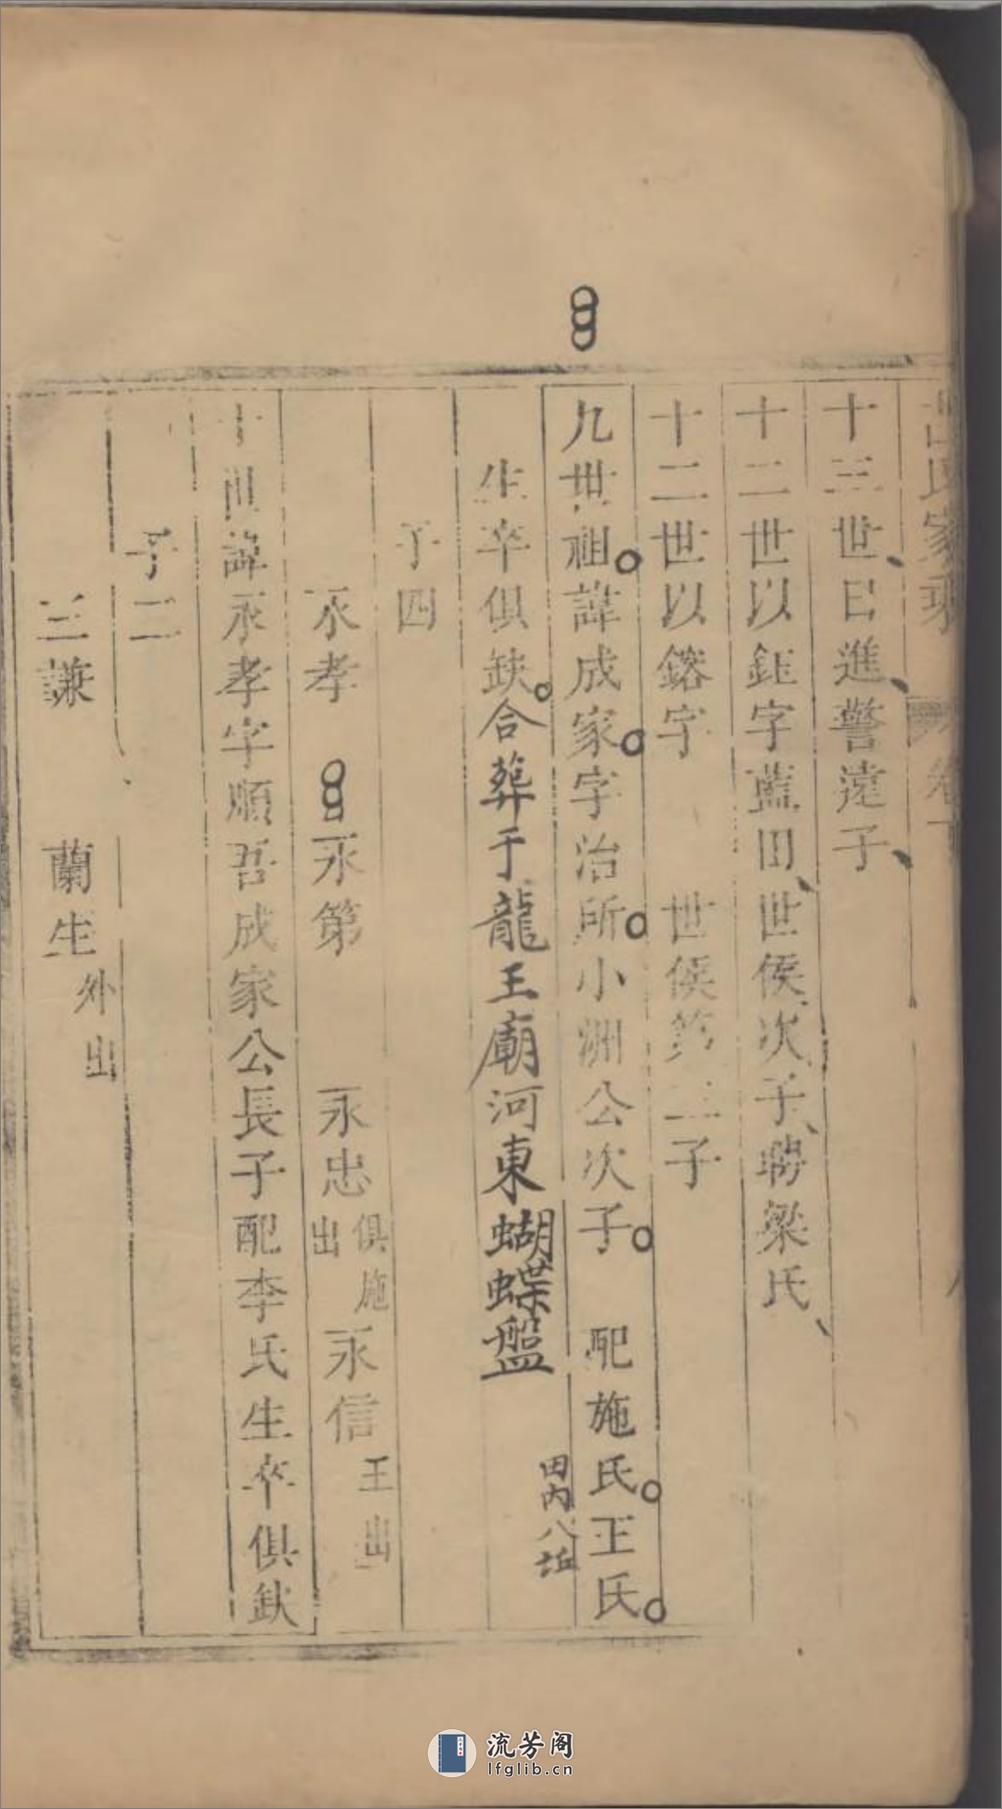 氏家乘 卷下
十三世日進警遠子
十二世以鉦字藍田世侯次子聘梁氏
十二世以鎔字 世侯第三子
九世祖諱成家字治所小洲公次子 配施氏王氏
生卒俱缺合葬于龍王廟河東蝴蝶盤
田內八坵
子四
永孝 永第 永忠俱施出 永信王出
十世諱永孝字順吾成家公長子配李氏生卒俱缺
子二
三謙 蘭生外出
流芳阁
lfglib.cn